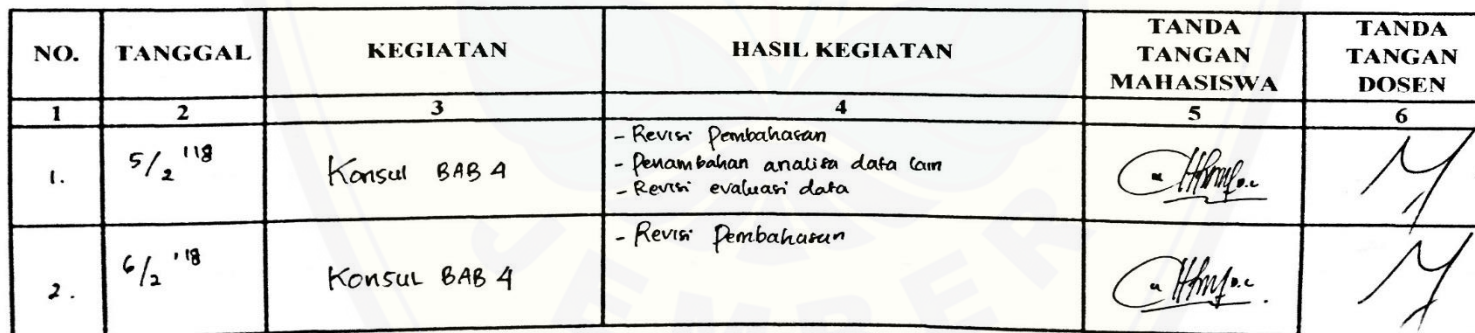 NO. TANGGAL KEGIATAN HASIL KEGIATAN TANDA TANGAN MAHASISWA TANDA TANGAN DOSEN
1 2 3 4 5 6
1. 5/2 '18 Konsul BAB 4 - Revisi Pembahasan
- Penambahan analisa data lain
- Revisi evaluasi data
2. 6/2 '18 Konsul BAB 4 - Revisi Pembahasan
JEMBER